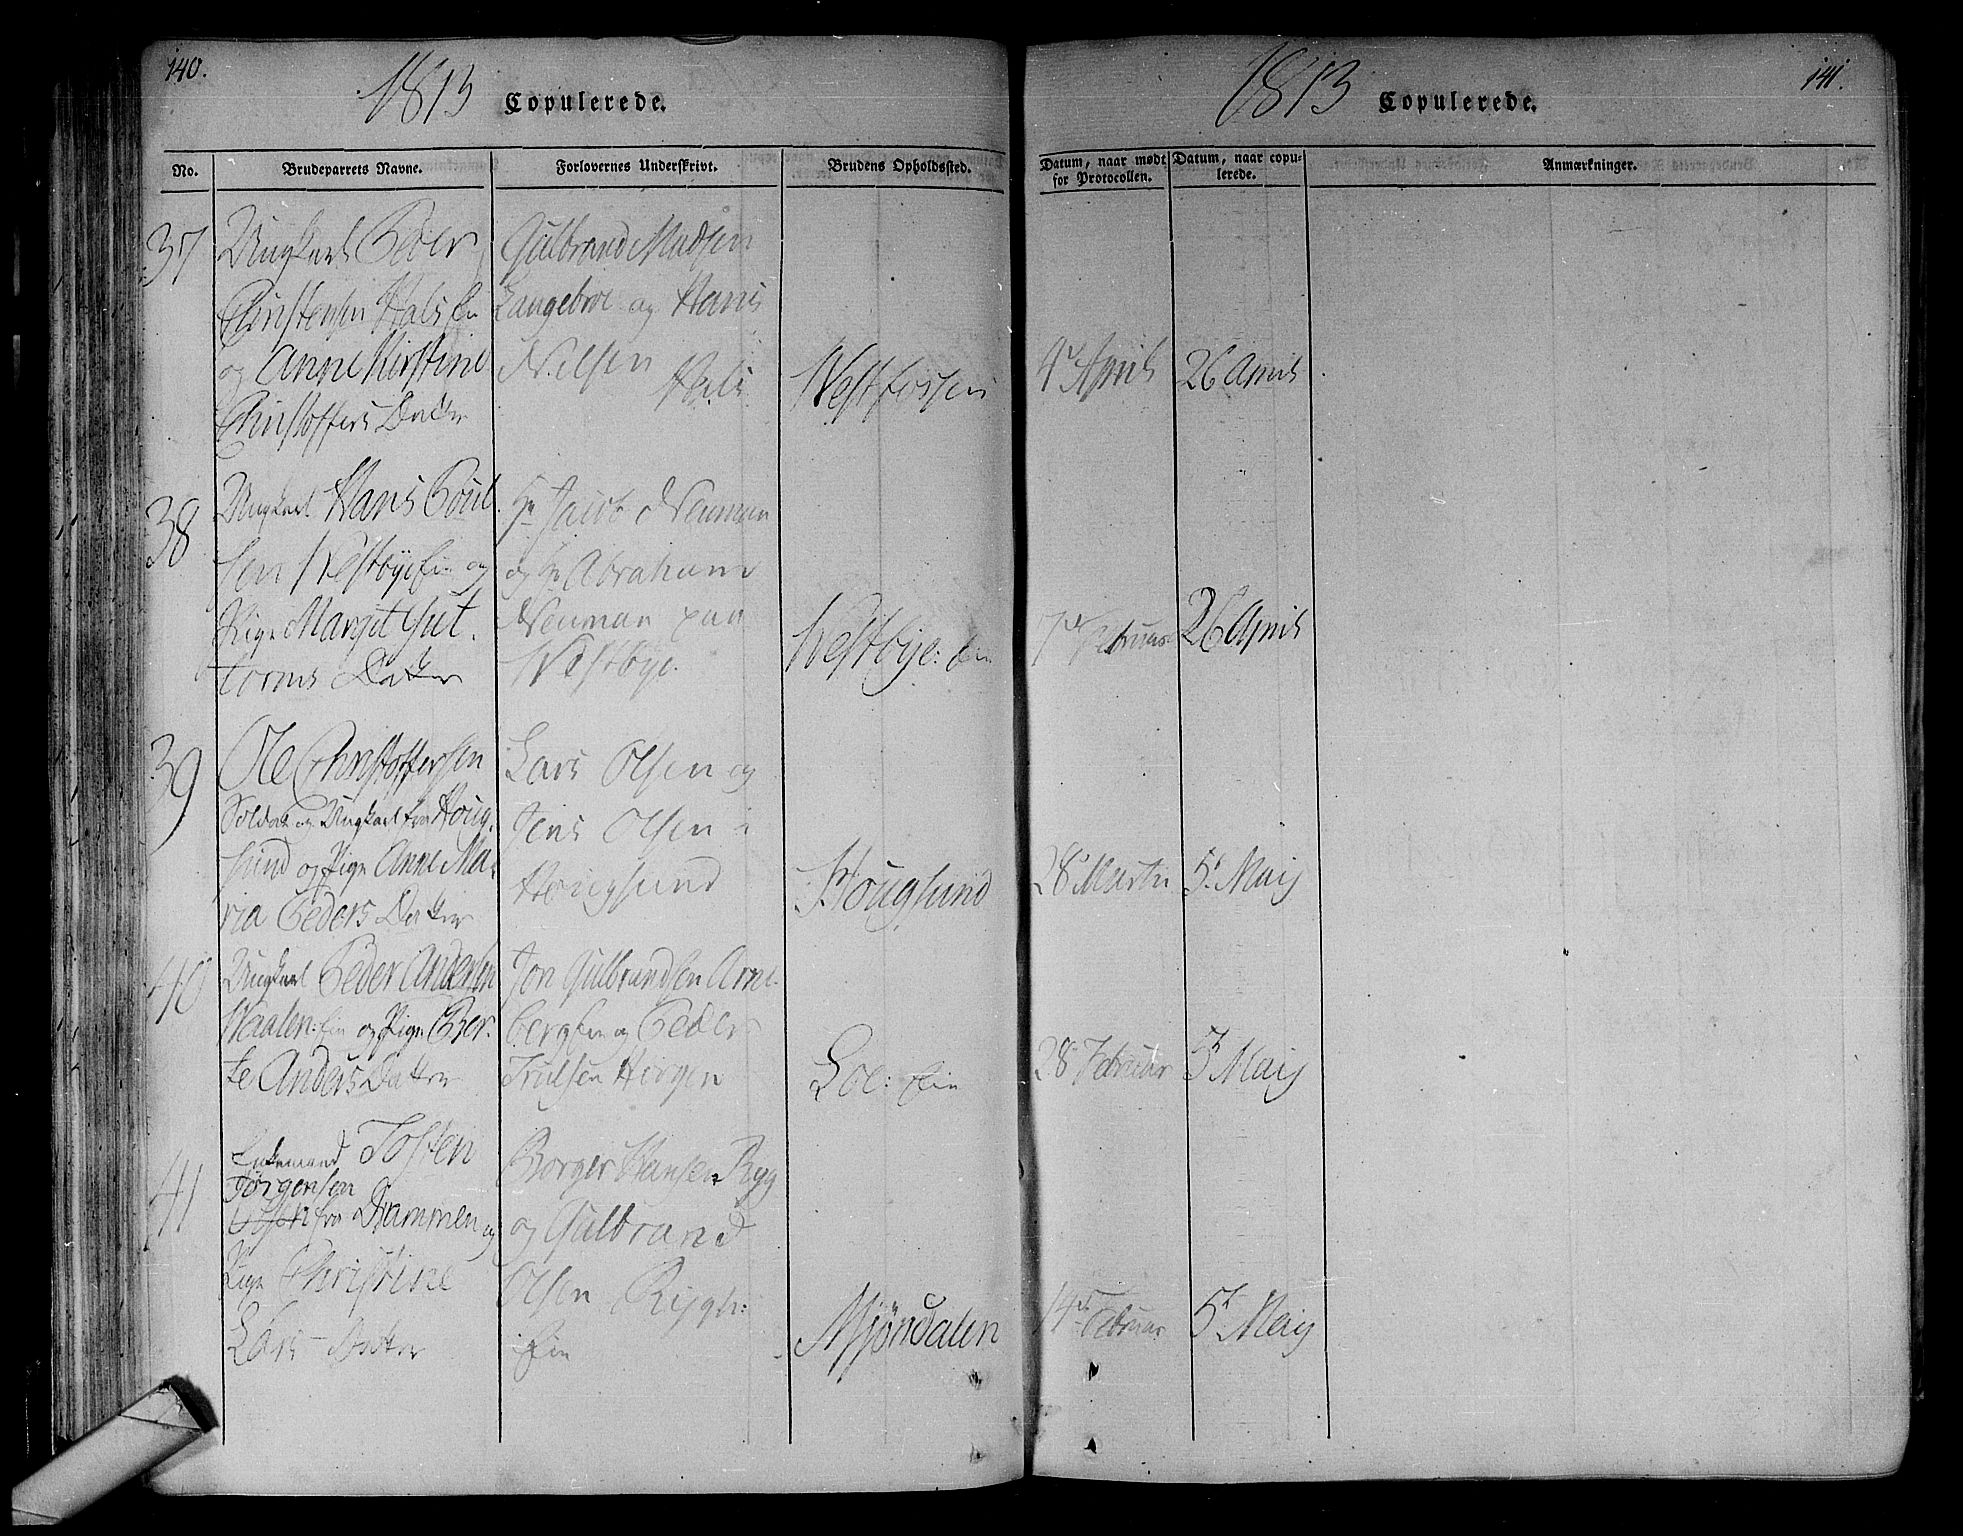 140.
1813 Copulerede.
No.
Brudeparrets Navne.
Forlovernes Underskrivt.
Brudens Opholdssted.
37
Ungkarl Peder
Christensen Hals Ein
og Anne Kirstine
Christoffers Datter
Gulbrand Madsen
Langebroe og Hans
Nilsen Hals
Westfossen
38
Ungkarl Hans Poul
sen Westbye Ein og
Pige Margit Gut.
torms Datter
Hr Jacob Neuman
og Hr Abraham
Neuman paa
Westbye.
Westbye: Ein
39
Ole Christoffersen
Soldat og Ungkarl fra Houg.
sund og Pige Anne Ma.
ria Peders Datter
Lars Olsen og
Jens Olsen i
Hougsund
Hougsund
40
Ungkarl Peder Andersen
Haalen: Ein og Pige Ber.
te Anders Datter
Jon Gulbrandsen Arne.
berg Ein og Peder
Trulsen Horgen
Loe: Ein
41
Enkemand Tosten
Jørgensen
Olsen fra Drammen og
Pige Christine
Lars-Datter
Borger Hansen Ryg
og Gulbrand
Olsen Rygh:
Ein
Mjöndalen
141.
1813 Copulerede.
Datum, naar mødt
for Protocollen.
Datum, naar copu-
lerede.
Anmærkninger.
4 April 26 April
7 Februar 26 April
28 Martii 5 Maij
28 Februar 5 Maij
14 Februar 5 Maij